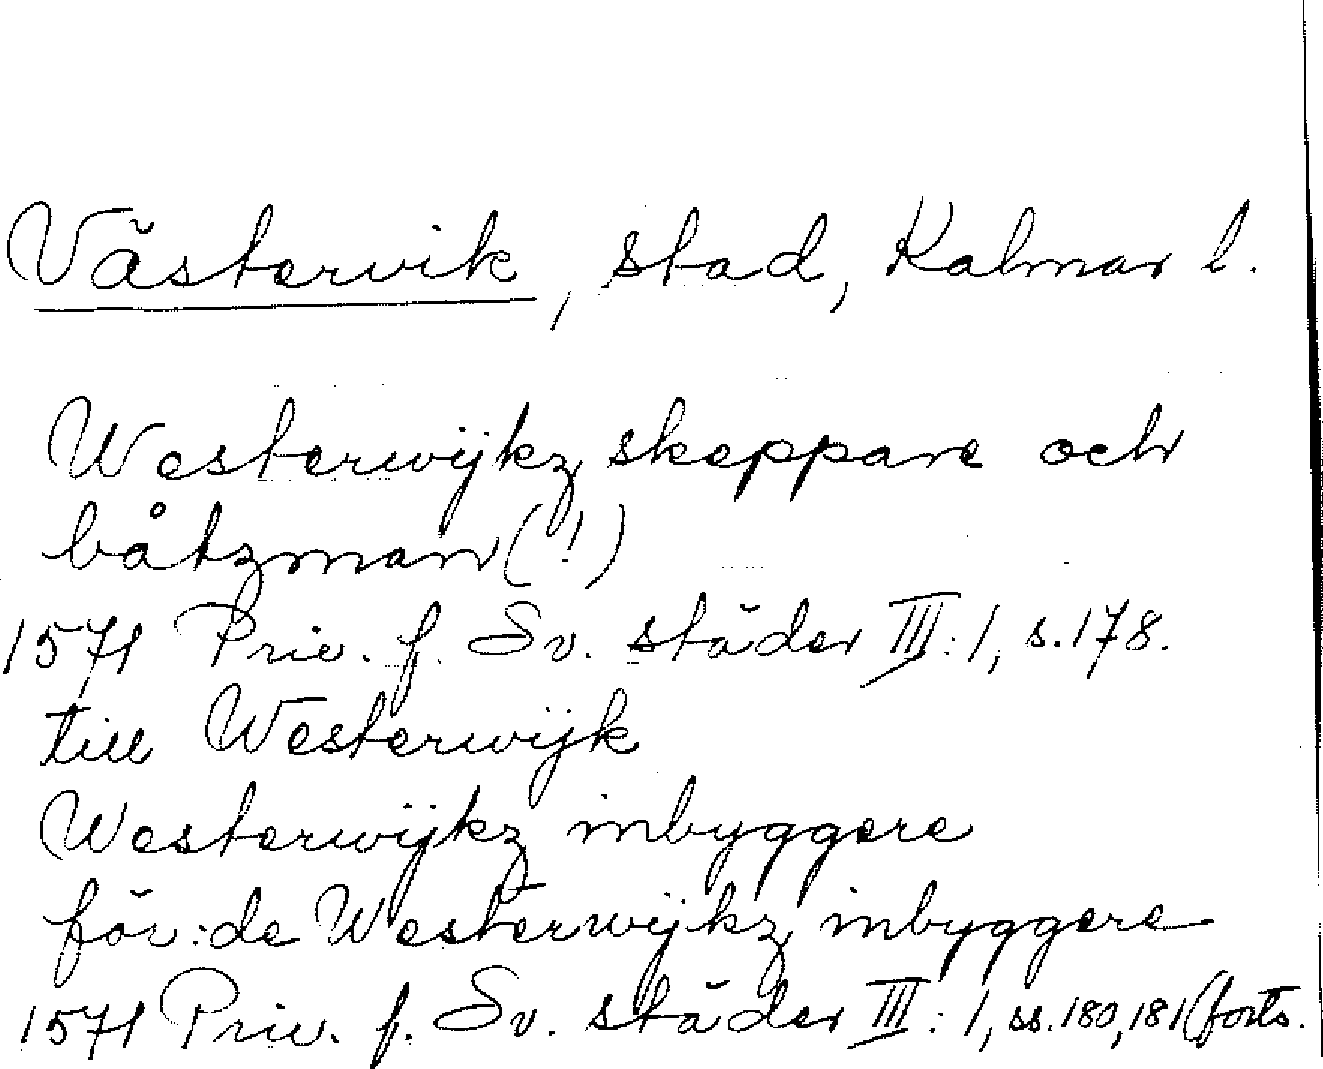 Västervik, stad, Kalmar l.
Westerwijkz skeppare och
båtzman (!)
1571 Priv. f. Sv. städer III:1, s.178.
till Westerwijk
Westerwijkz inbyggere
för:de Westerwijkz inbyggere
1571 Priv. f. Sv. städer III:1, ss.180,181 forts.